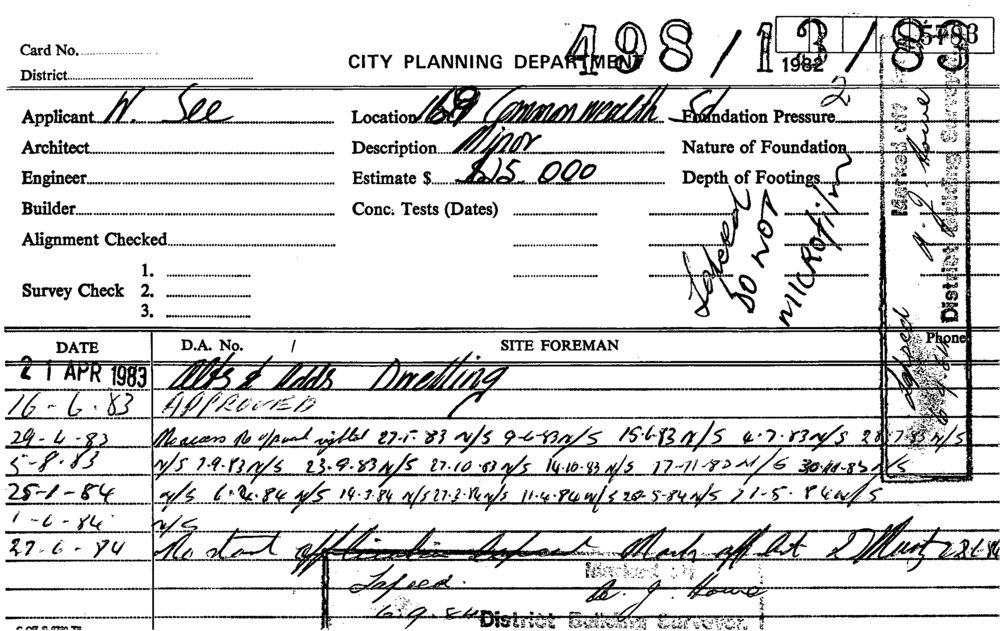 Card No.
498/13/83
5793
District
CITY PLANNING DEPARTMENT
1982
Applicant W. See
Location 169 Commonwealth St
Foundation Pressure
Architect
Description Minor
Nature of Foundation
Engineer
Estimate $ $15.000
Depth of Footings
Builder
Conc. Tests (Dates)
Alignment Checked
Survey Check
1.
2.
3.
Lapsed
DO NOT
MICROFILM
Marked off
District Building Surveyor
Lapsed
6.9.84
DATE
D.A. No. /
SITE FOREMAN
Phone
21 APR 1983
Alts & Adds Dwelling
16-6-83
APPROVED
29-4-83
No access 27-5-83 N/S 9-6-83 N/S 15-6-83 N/S 4-7-83 N/S
5-8-83
N/S 7.9.83 N/S 23.9.83 N/S 27.10.83 N/S 14.10.83 N/S 17-11-83 N/S 30-11-83 N/S
25-1-84
N/S N/S N/S N/S 11-4-84 N/S N/S N/S
1-6-84
N/S
27-6-84
No start
Lapsed.
Marked off
6.9.84
District Building Surveyor.